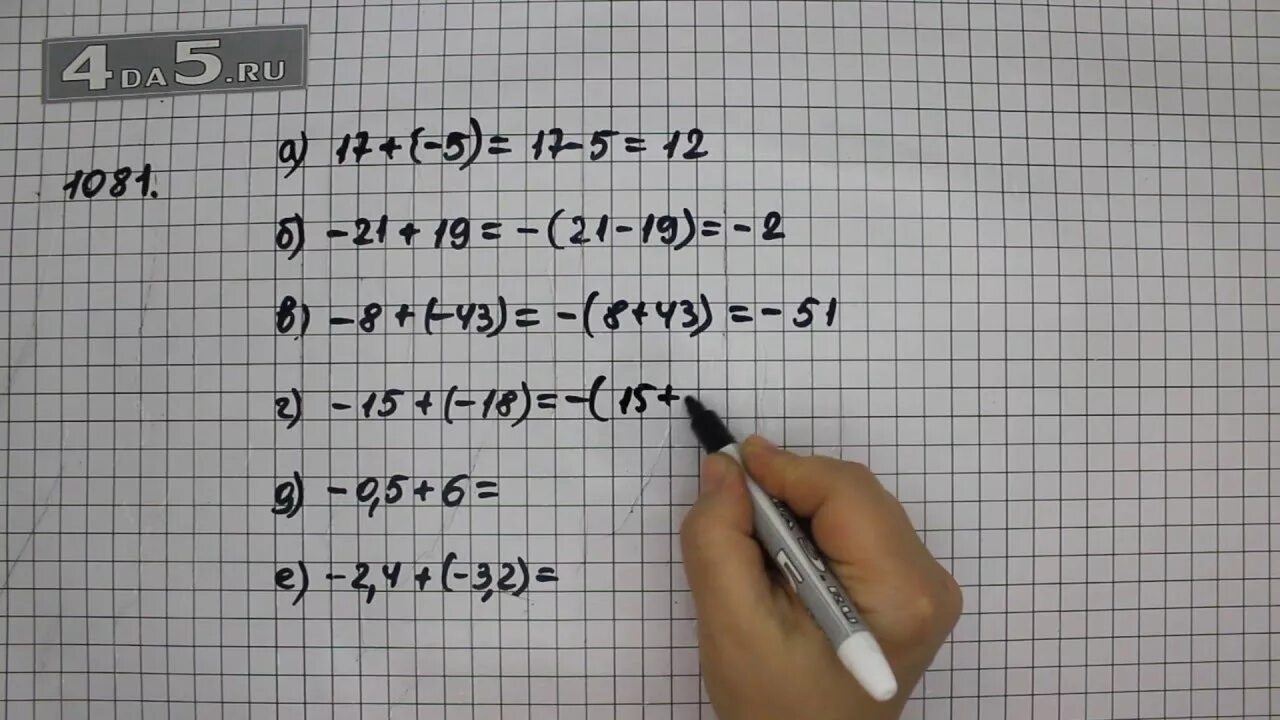 4DA5.RU
1081.
а) 17+(-5)= 17-5 = 12
б) -21+19=-(21-19)=-2
в) -8+(-43)=-(8+43)=-51
г) -15+(-18)=-(15+
д) -0,5+6=
е) -2,4+(-3,2)=